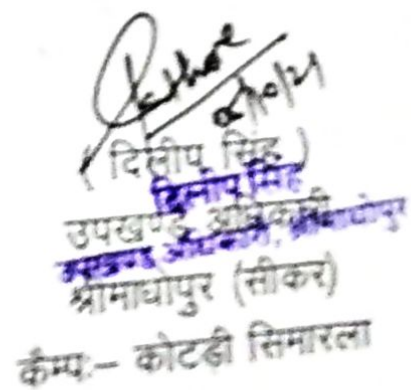 02/10/21
( दिलीप सिंह )
दिलीप सिंह
उपखण्ड अधिकारी
उपखण्ड अधिकारी, श्रीमाधोपुर
श्रीमाधोपुर (सीकर)
कैम्पः– कोटडी सिमारला